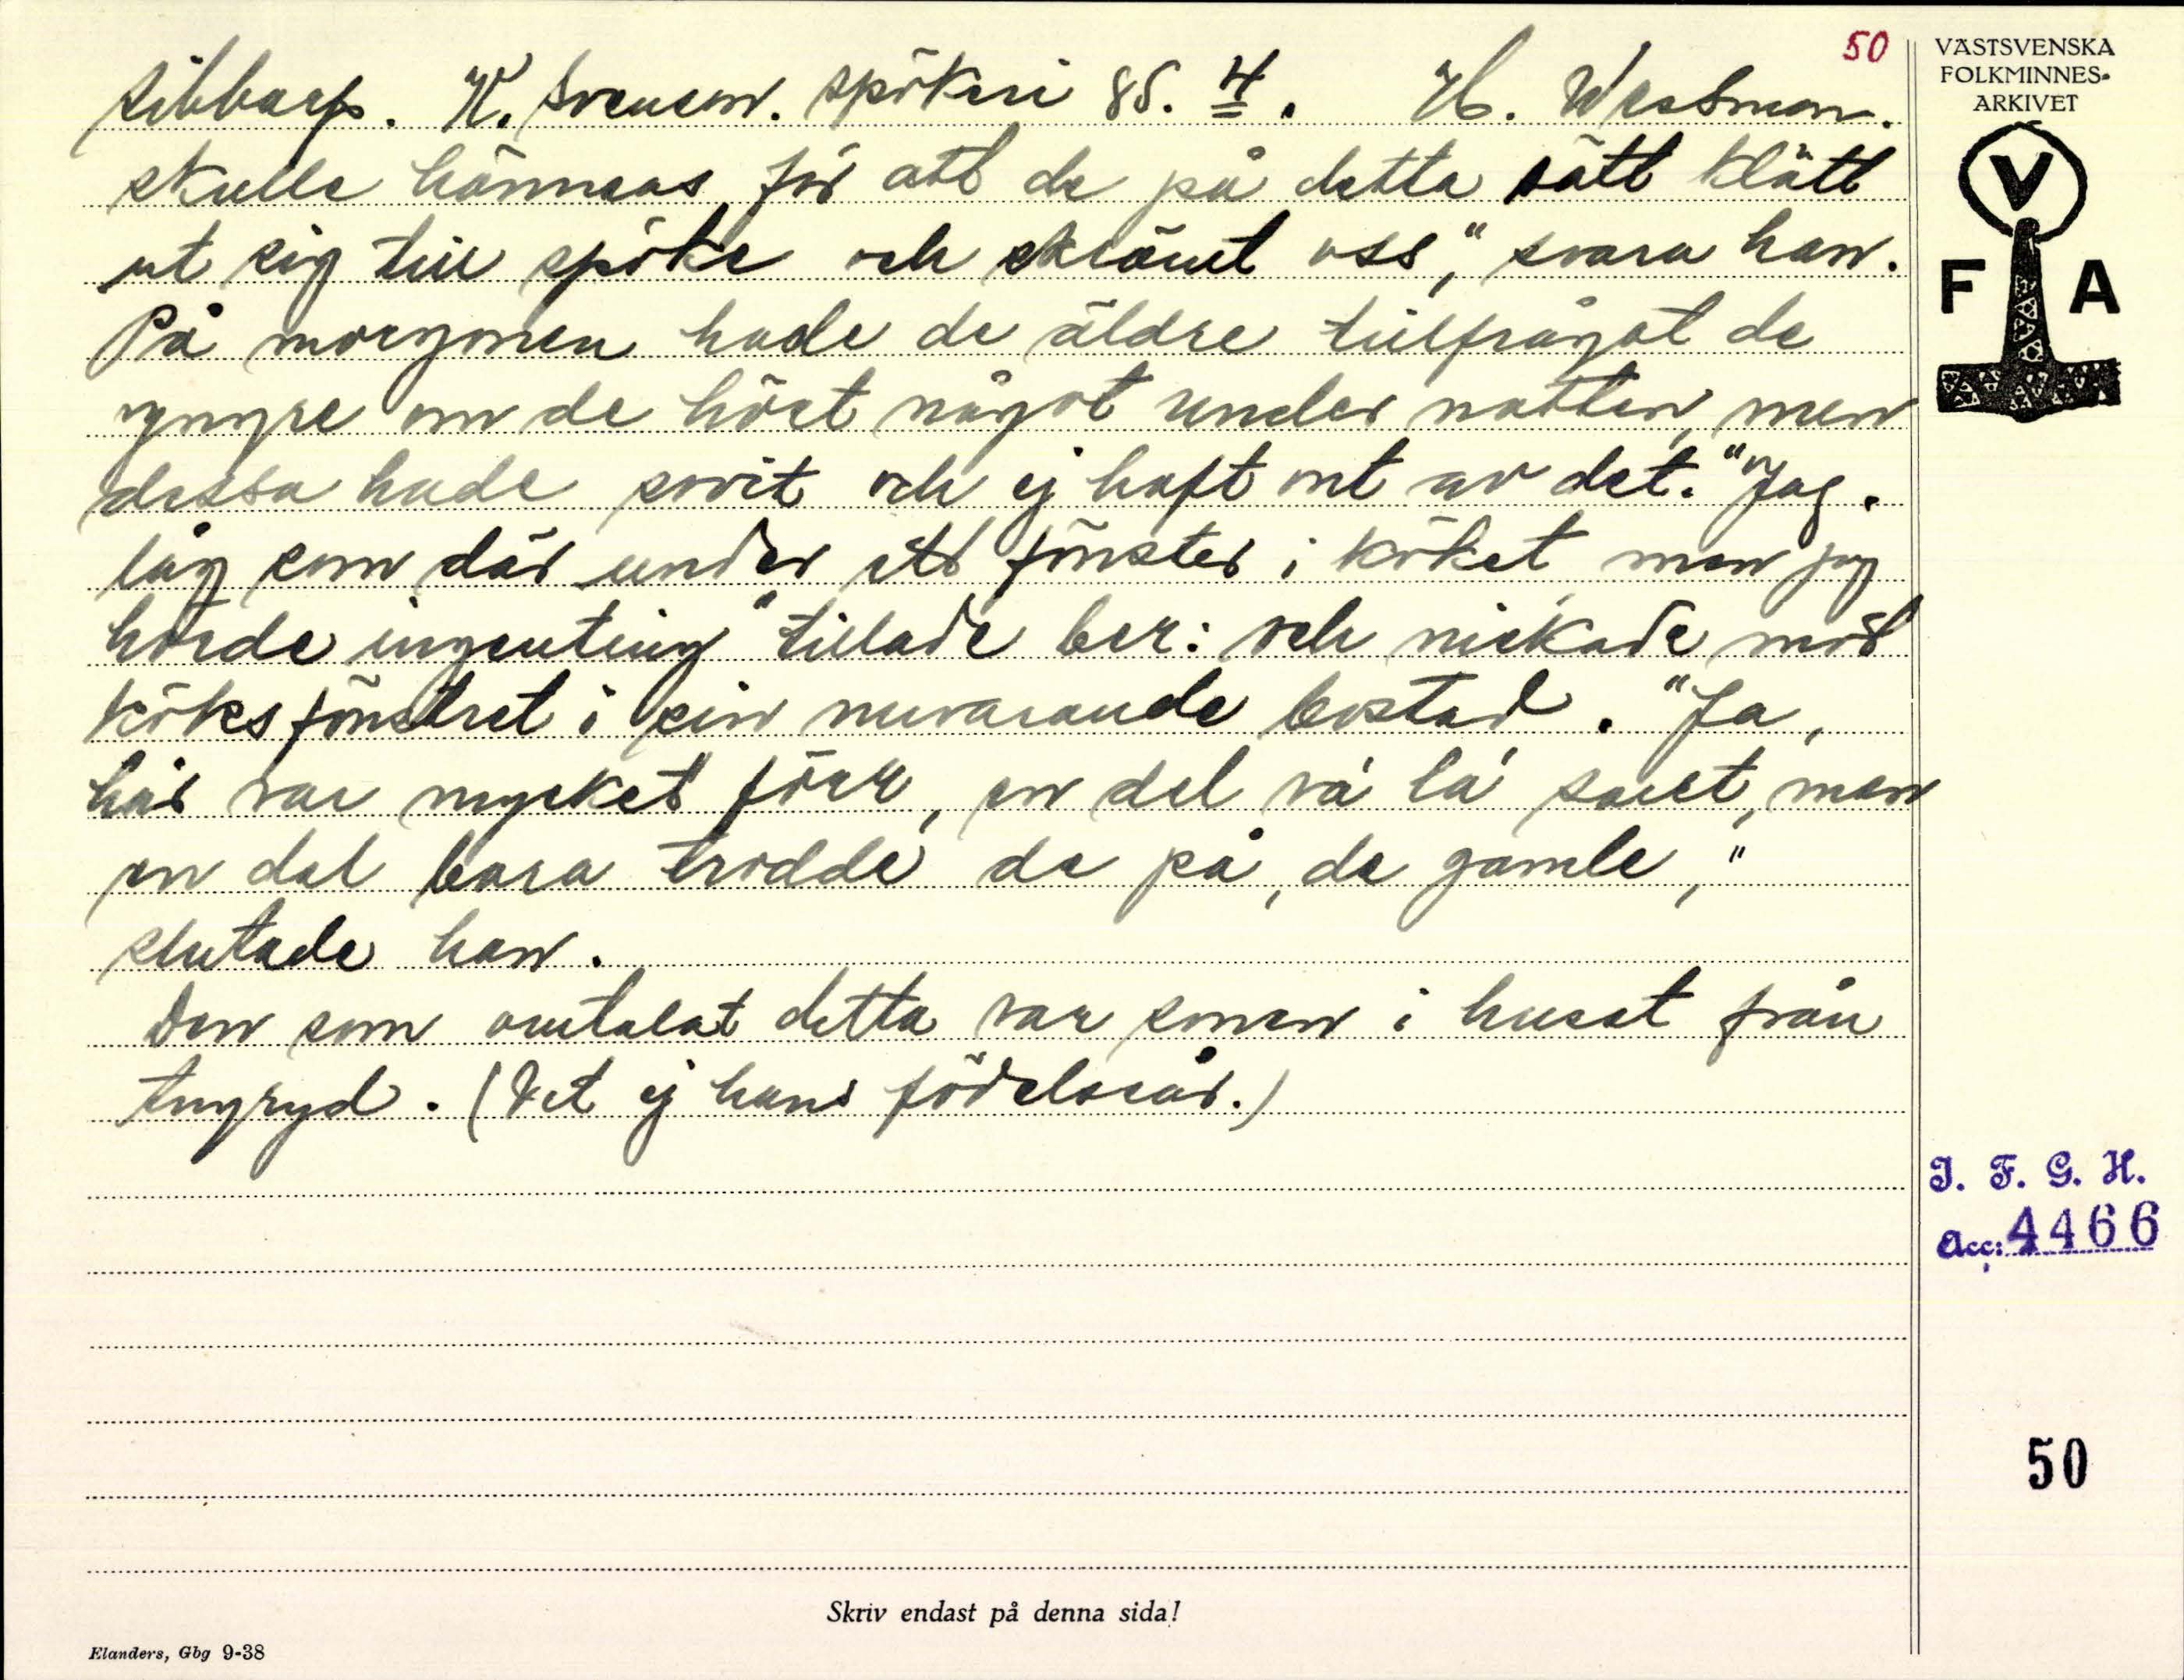 50
Sibbarp. K. Svenson. Spökeri 85. 4. H. Wessman.
skulle hämnas för att de på detta sätt klätt
ut sig till spöke och skrämt oss," svara han.
På morgonen hade de äldre tillfrågat de
yngre om de hört något under natten, men
dessa hade sovit och ej haft ont av det. "Jag
låg som där under ett fönster i köket, men jag
hörde ingenting" tillade ber: och nickade mot
köksfönstret i sin nuvarande bostad. "Ja,
här var mycket förr, en del va la sant, men
en del bara trodde de på, de gamle,"
slutade han.
Den som omtalat detta var sonen i huset från
Ingryd. (Vet ej hans födelseår.)
VÄSTSVENSKA
FOLKMINNES-
ARKIVET
V
F A
I. F. G. H.
Acc: 4466
50
Skriv endast på denna sida!
Elanders, Gbg 9-38